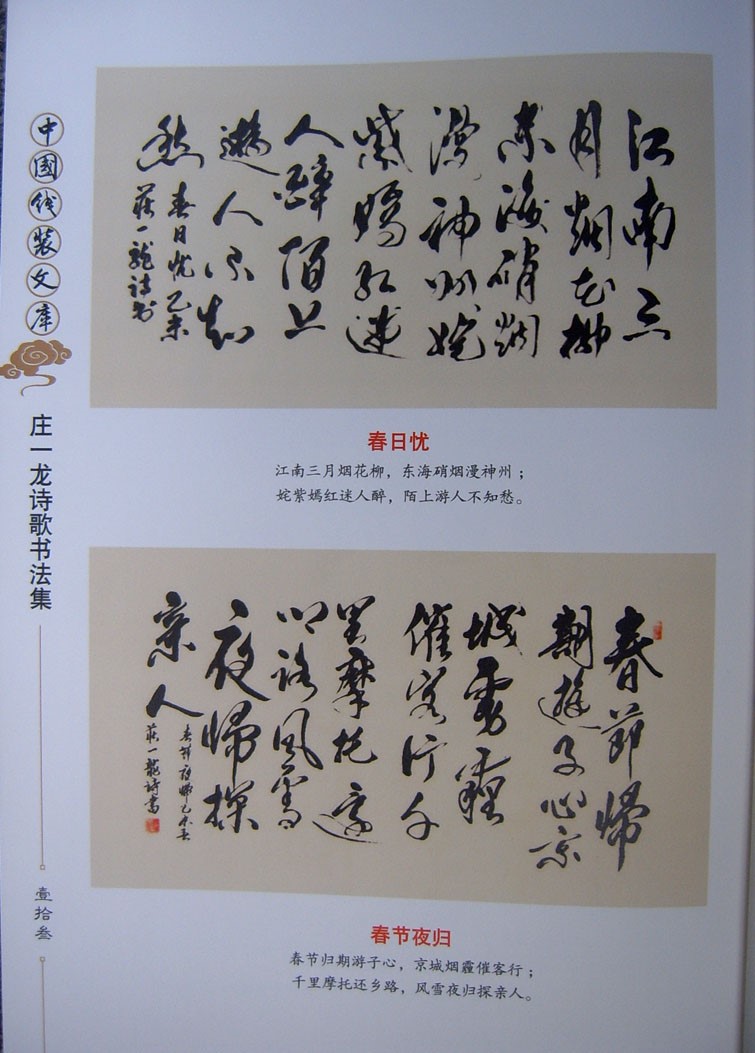 中国线装文库
庄一龙诗歌书法集
壹拾叁
江南三
月烟花柳
东海硝烟
漫神州姹
紫嫣红迷
人醉陌上
遊人不知
愁
春日忧乙未
莊一龍詩书
春日忧
江南三月烟花柳，东海硝烟漫神州；
姹紫嫣红迷人醉，陌上游人不知愁。
春節帰
期遊子心京
城雾霾
催客行千
里摩托還
乡路风雪
夜帰探
亲人
春節夜帰乙未春
莊一龍詩書
春节夜归
春节归期游子心，京城烟霾催客行；
千里摩托还乡路，风雪夜归探亲人。